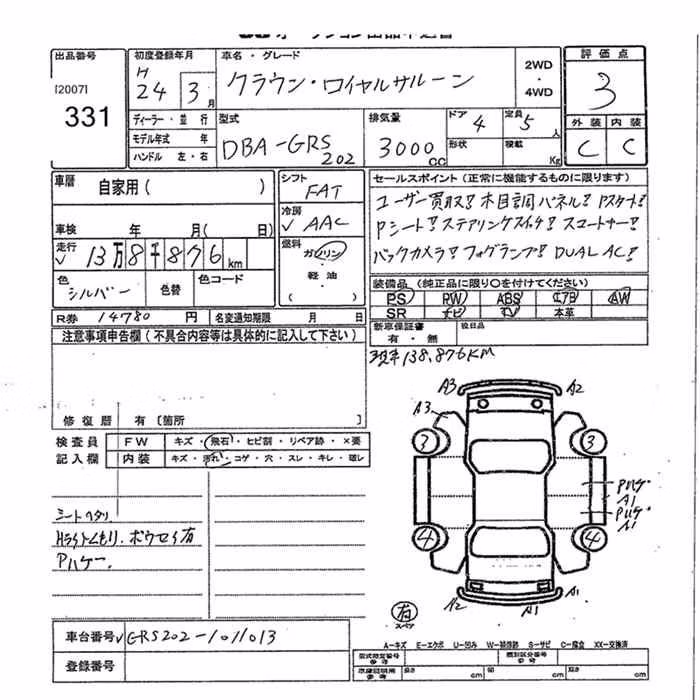 出品番号 初度登録年月 車名・グレード 評価点
[2007] H クラウン・ロイヤルサルーン 2WD・4WD 3
331 24 3月
ディーラー・並行 型式 排気量 ドア 4 定員 5人 外装 内装
モデル年式 年 DBA-GRS202 3000cc 形状 積載 Kg C C
ハンドル 左・右
車歴 自家用( ) シフト FAT セールスポイント(正常に機能するものに限ります)
冷房 AAC ユーザー買取!! 木目調パネル! Pスタート!
車検 年 月( 日) Pシート! ステアリングスイッチ! スコートナー!
走行 13万8千876km 燃料 ガソリン・軽油・( ) バックカメラ! フォグランプ! DUAL AC!
色 シルバー 色替 色コード 装備品(純正品に限り〇を付けてください)
PS PW ABS エアB AW
SR ナビ TV 本革
R券 14780円 名変通知期限 月 日 新車保証書 有・無 後日品
注意事項申告欄(不具合内容等は具体的に記入して下さい) 現車138,876KM
修復歴 有〔箇所 〕
検査員 FW キズ・飛石・ヒビ割・リペア跡・×要
記入欄 内装 キズ・汚れ・コゲ・穴・スレ・キレ・破レ
A3 A2
A3
3 3
Pハゲ
A1
Pハゲ
A1
4 4
A2 A1 A1
シートヘタリ
Hライトくもり. ボウセイ有
Pハゲー.
有
スペア
車台番号 GRS202-1011013
登録番号
A-キズ E-エクボ U-凹み W-補修跡 S-サビ C-腐食 XX-交換済
型式指定番号 参考 類別区分番号 参考
車庫証明用 参考 長さ cm 幅 cm 高さ cm